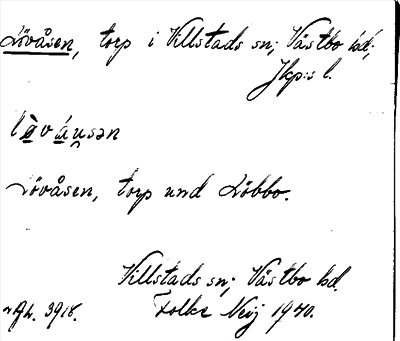 Lövåsen, torp i Villstads sn; Västbo hd;
Jkp:s l.
lö̀váu̯sən
Lövåsen, torp und Löbbo.
Villstads sn; Västbo hd.
3918. Folke Neij 1940.